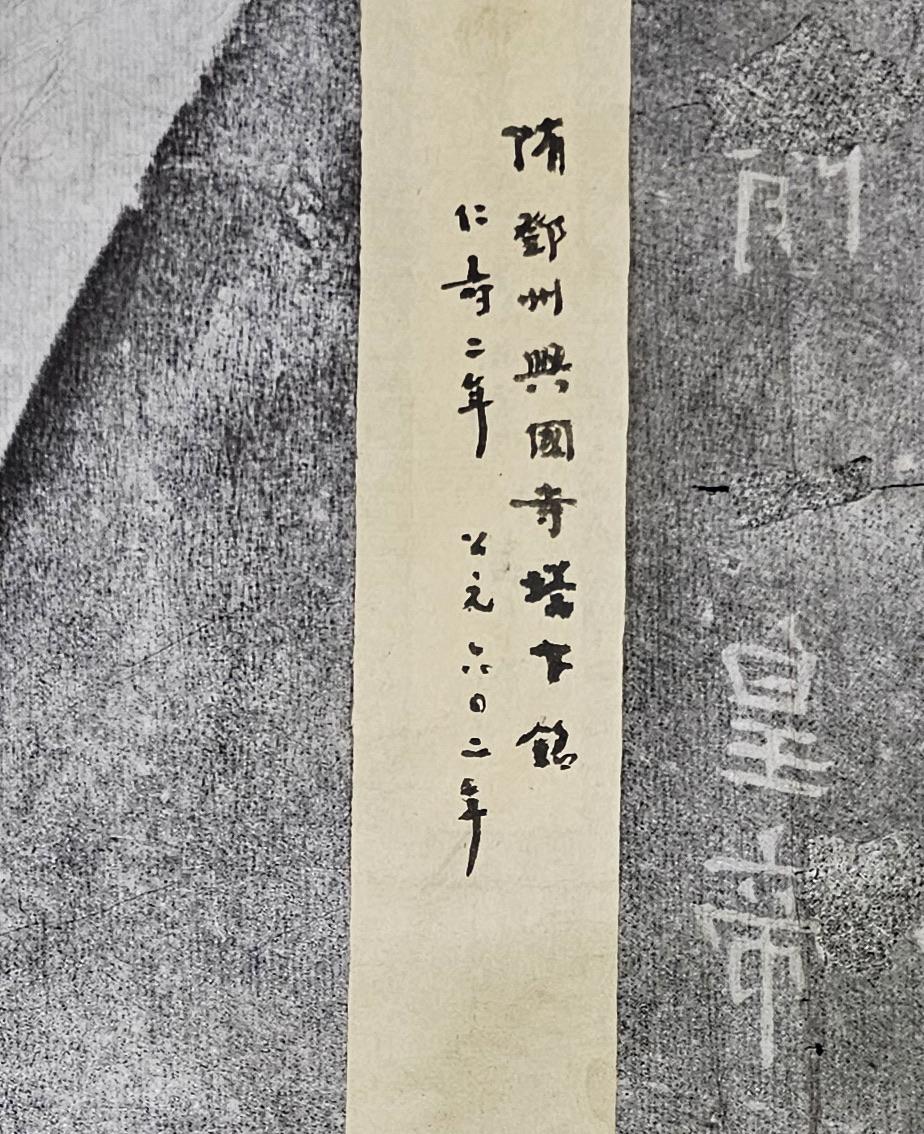 卯皇帝
隋鄧州興國寺塔下銘
仁寿二年 公元六〇二年